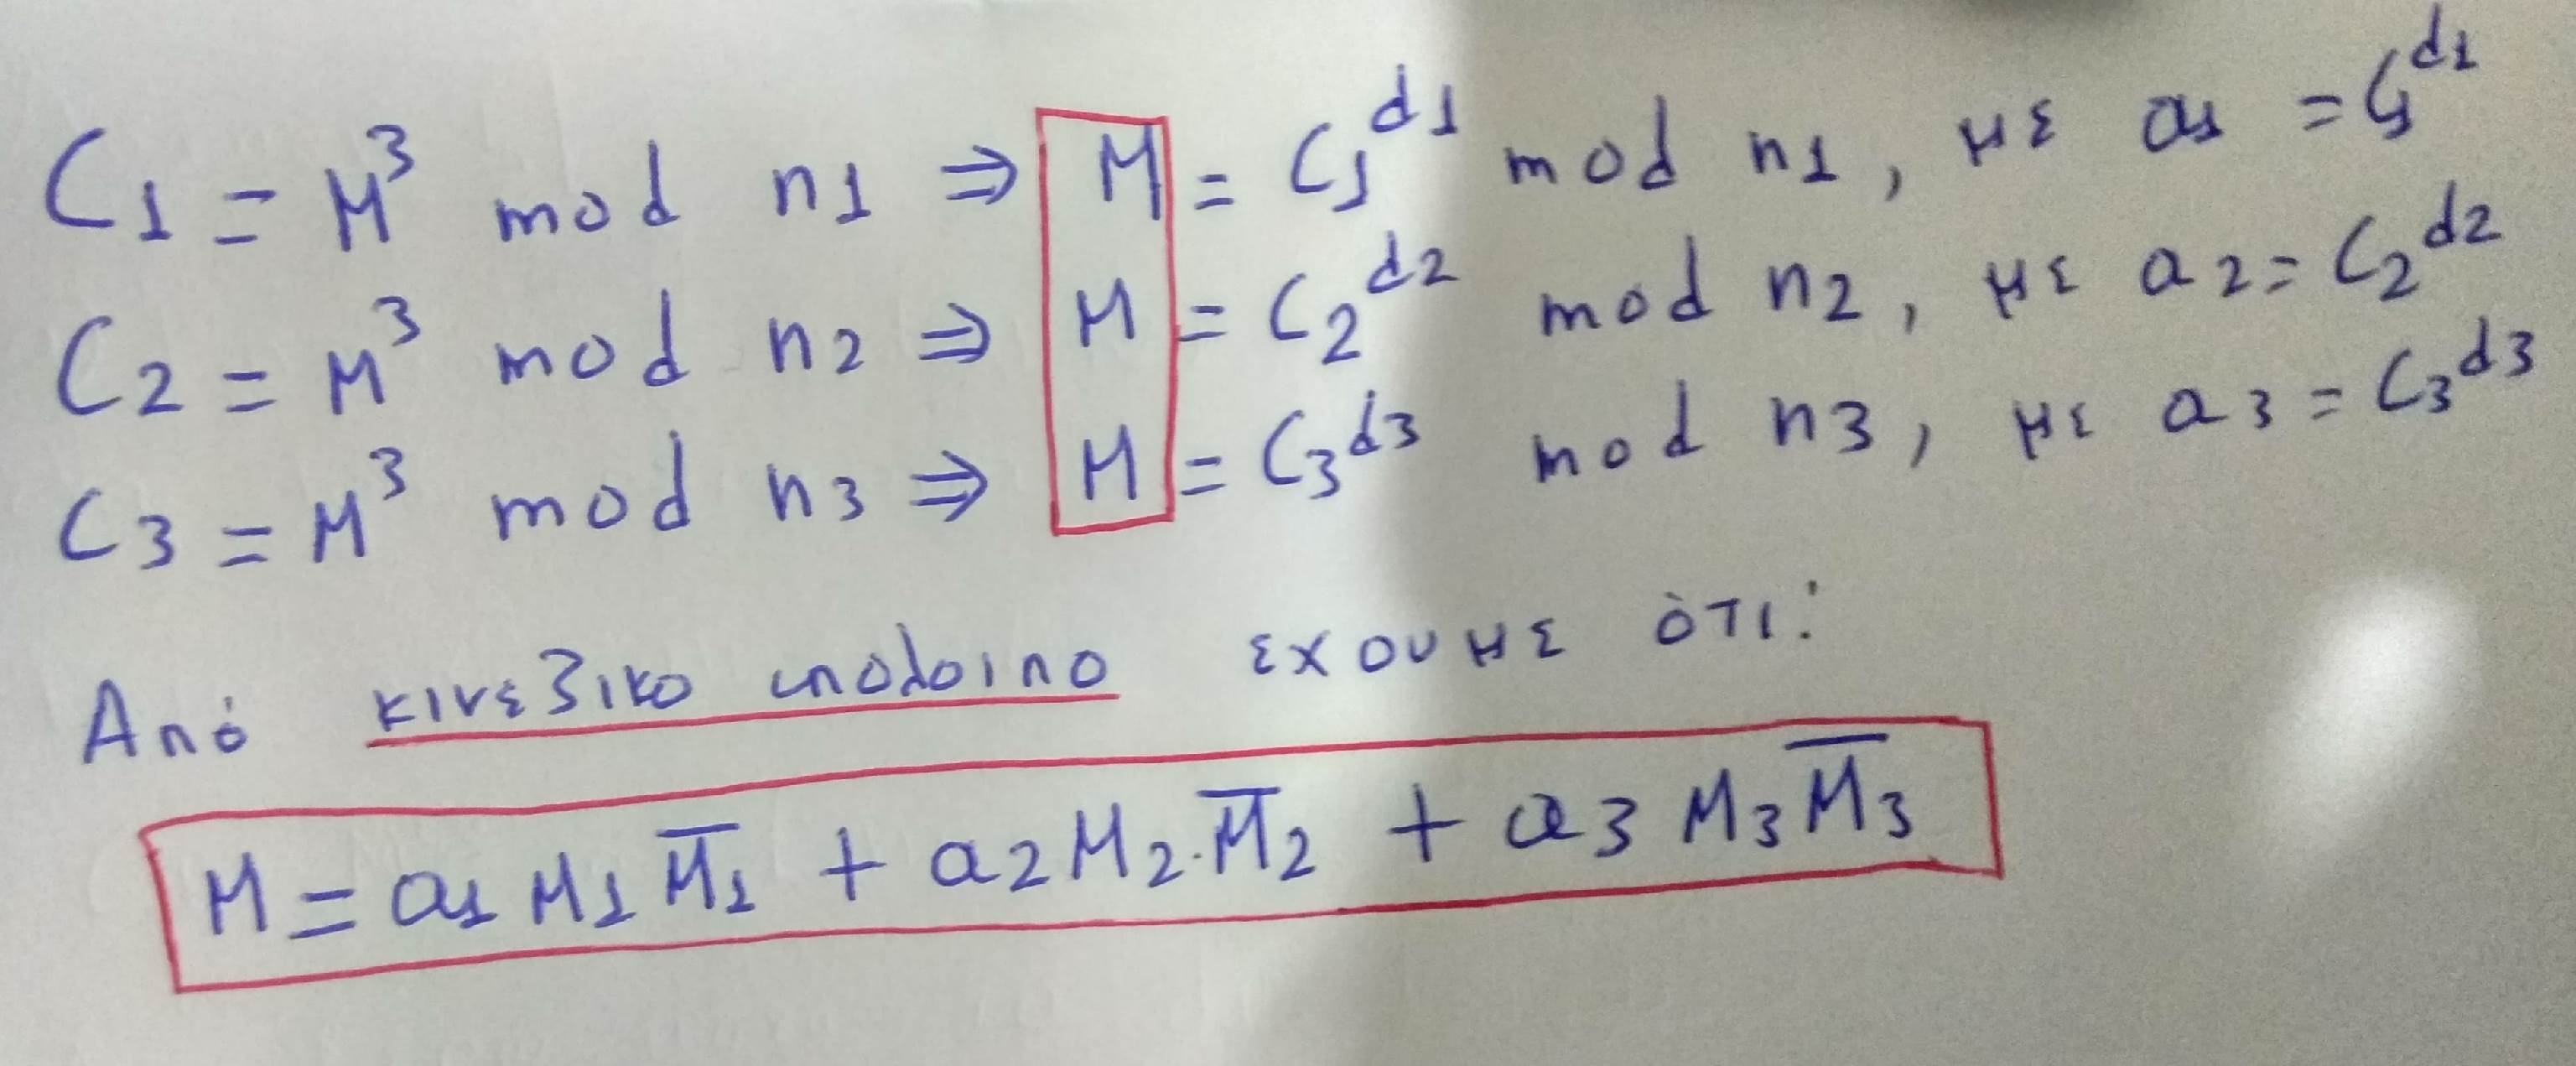 C1 = M³ mod n1 ⇒ M = C1^d1 mod n1, με a1 = C1^d1
C2 = M³ mod n2 ⇒ M = C2^d2 mod n2, με a2 = C2^d2
C3 = M³ mod n3 ⇒ M = C3^d3 mod n3, με a3 = C3^d3
Από κινεζικο υπολοιπο εχουμε ότι:
M = a1 M1 M̅1 + a2 M2 · M̅2 + a3 M3 M̅3